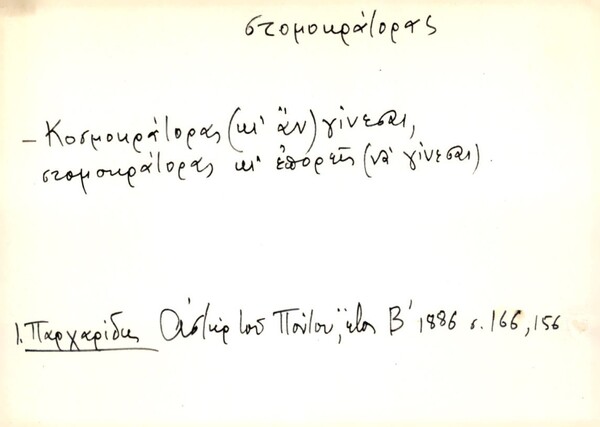 στομοκράτορας
– Κοσμοκράτορας (κι' ἂν) γίνεσαι,
στομοκράτορας κι' ἐπορεῖς (νὰ γίνεσαι).
Ι. Παρχαρίδης Ἀστὴρ τοῦ Πόντου", ἔτος Β' 1886 σ. 166, 156